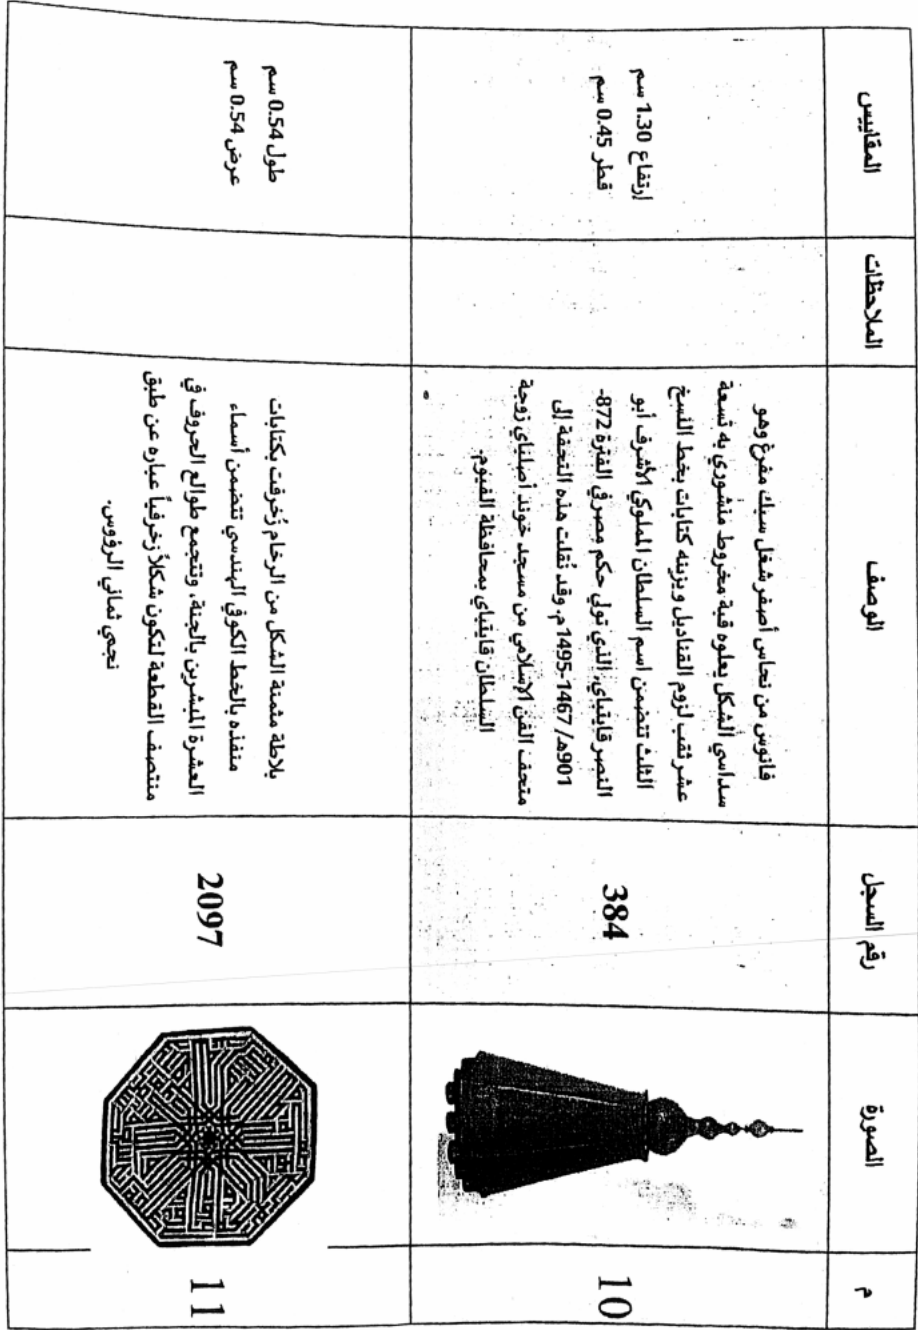 م
الصورة
رقم السجل
الوصف
الملاحظات
المقاييس
10
384
فانوس من نحاس أصفر شغل سبك مفرغ وهو
سداسي الشكل يعلوه قبة مخروط منشوري به تسعة
عشر ثقب لزوم القناديل ويزينه كتابات بخط النسخ
الثلث تتضمن اسم السلطان المملوكي الأشرف أبو
النصر قايتباي، الذي تولي حكم مصر في الفترة 872-
901هـ/ 1467-1495م، وقد نُقلت هذه التحفة إلى
متحف الفن الإسلامي من مسجد خوند أصلباي زوجة
السلطان قايتباي بمحافظة الفيوم.
إرتفاع 1.30 سم
قطر 0.45 سم
11
2097
بلاطة مثمنة الشكل من الرخام زُخرفت بكتابات
منفذه بالخط الكوفي الهندسي تتضمن أسماء
العشرة المبشرين بالجنة، وتتجمع طوالع الحروف في
منتصف القطعة لتكون شكلاً زخرفياً عباره عن طبق
نجمي ثماني الرؤوس.
طول 0.54 سم
عرض 0.54 سم